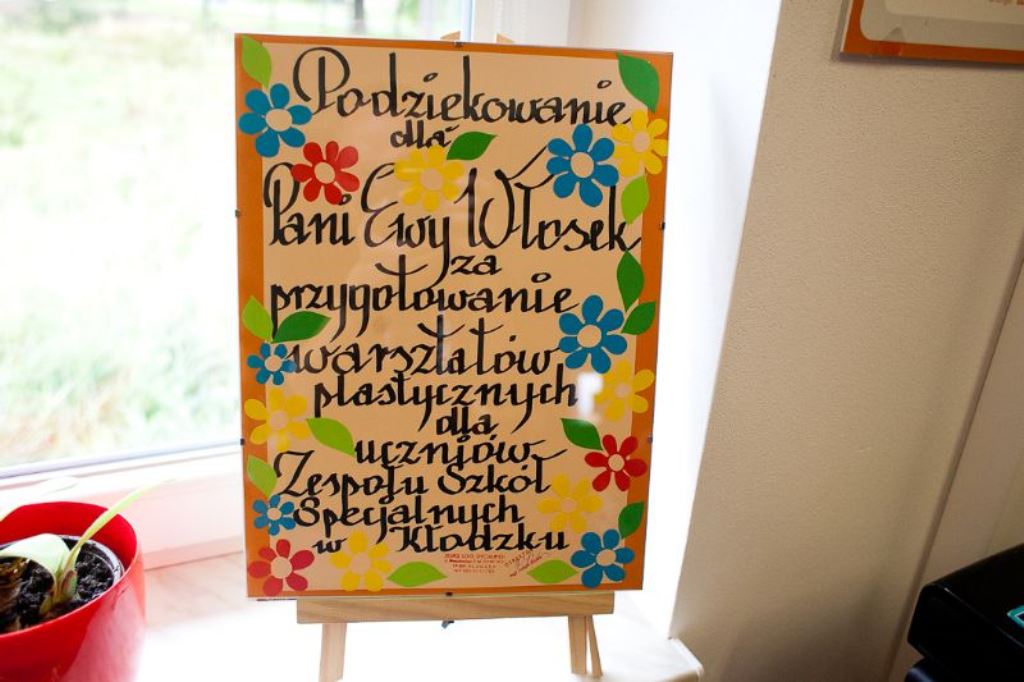 Podziękowanie
dla
Pani Ewy Włosek
za
przygotowanie
warsztatów
plastycznych
dla
uczniów
Zespołu Szkół
Specjalnych
w Kłodzku